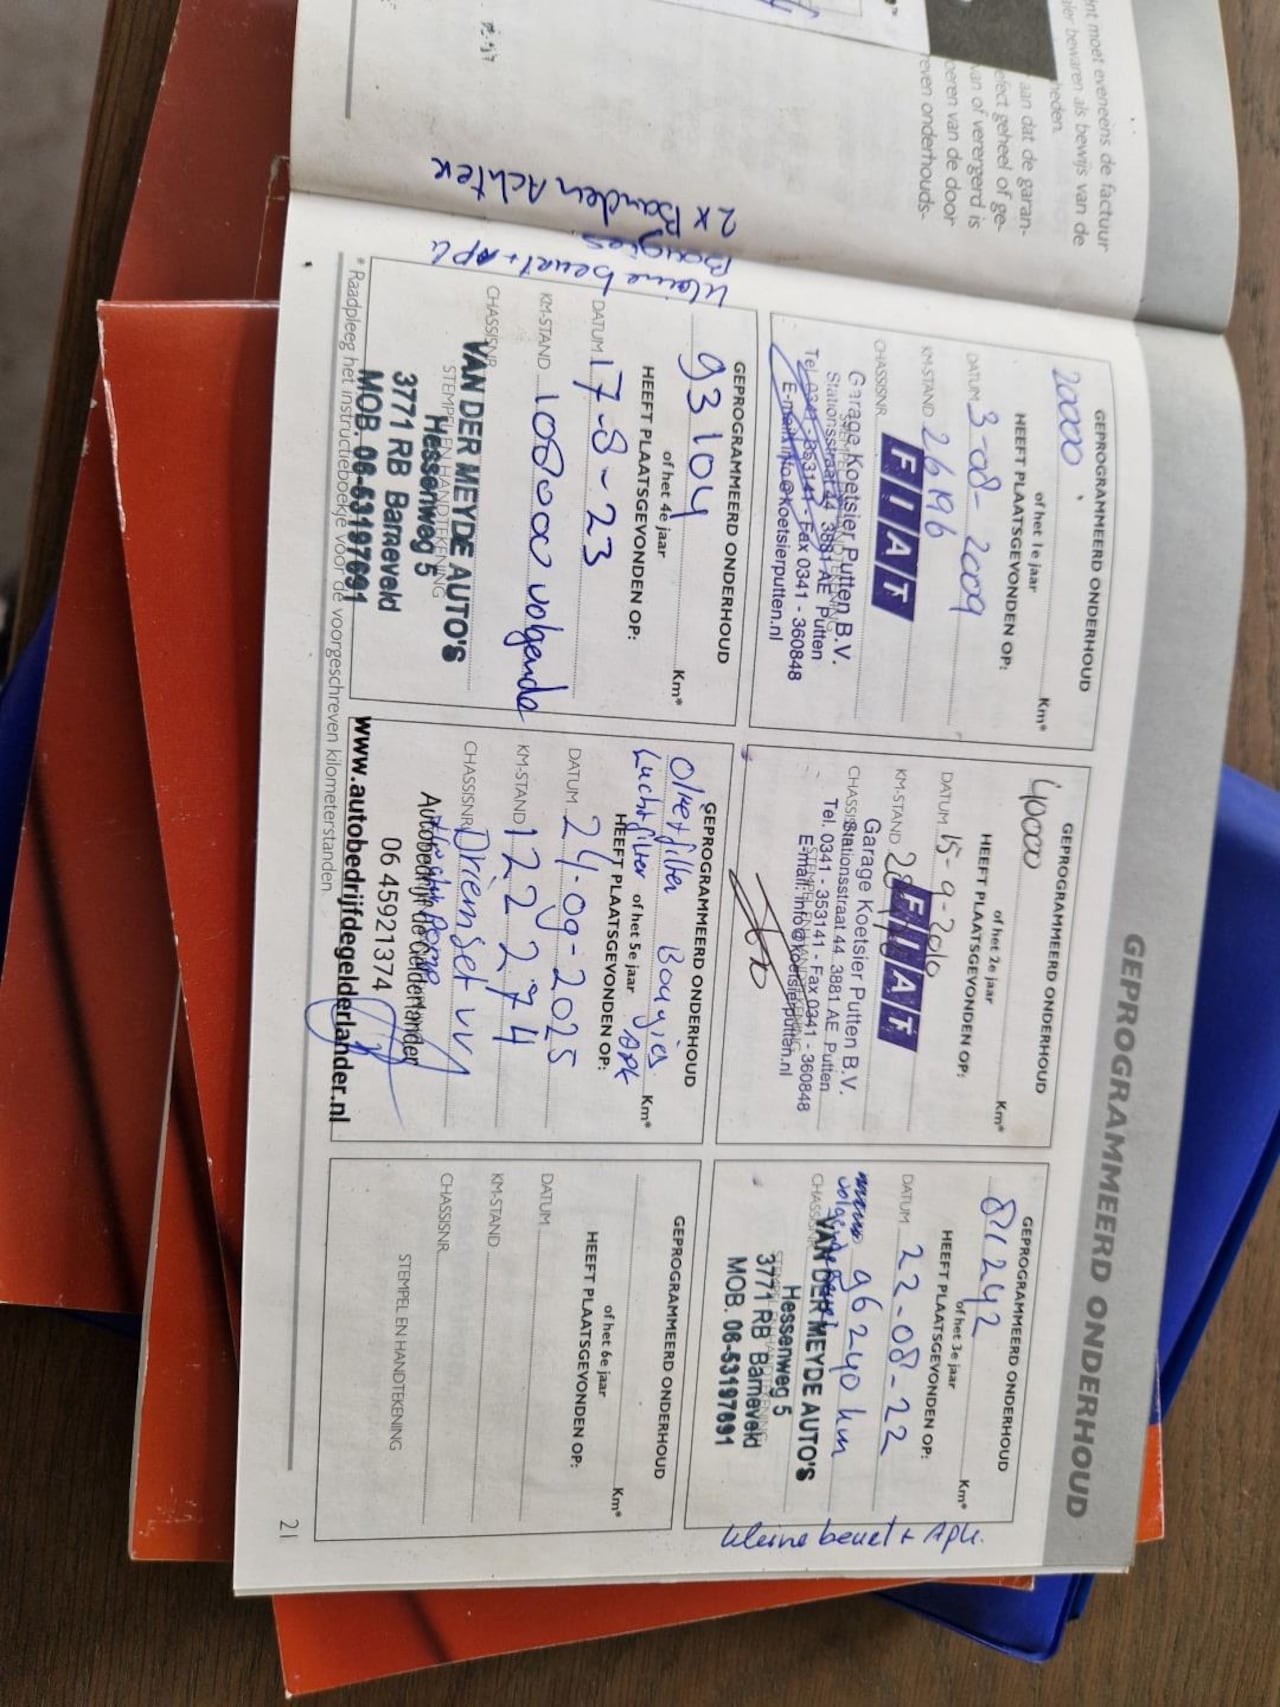 nt moet eveneens de factuur
aler bewaren als bewijs van de
heden.
aan dat de garan-
efect geheel of ge-
van of verergerd is
oeren van de door
even onderhouds-
GEPROGRAMMEERD ONDERHOUD
GEPROGRAMMEERD ONDERHOUD
20000 Km*
of het 1e jaar
HEEFT PLAATSGEVONDEN OP:
DATUM 3-08-2009
KM-STAND 26196
CHASSISNR.
FIAT
Garage Koetsier Putten B.V.
Stationsstraat 44 3881 AE Putten
Tel. 0341 - 353141 - Fax 0341 - 360848
E-mail: info@koetsierputten.nl
GEPROGRAMMEERD ONDERHOUD
40000 Km*
of het 2e jaar
HEEFT PLAATSGEVONDEN OP:
DATUM 15-9-2010
KM-STAND
FIAT
CHASSISNR.
Garage Koetsier Putten B.V.
Stationsstraat 44. 3881 AE Putten
Tel. 0341 - 353141 - Fax 0341 - 360848
E-mail: info@koetsierputten.nl
GEPROGRAMMEERD ONDERHOUD
81242 Km*
of het 3e jaar
HEEFT PLAATSGEVONDEN OP:
DATUM 22-08-22
96240 km
CHASSISNR.
VAN DER MEYDE AUTO'S
Hessenweg 5
3771 RB Barneveld
MOB. 06-53197691
kleine beurt + Apk.
kleine beurt + Apk
Bougies.
2x Banden Achter
GEPROGRAMMEERD ONDERHOUD
93104 Km*
of het 4e jaar
HEEFT PLAATSGEVONDEN OP:
DATUM 17-8-23
KM-STAND 108000 volgende
CHASSISNR.
STEMPEL EN HANDTEKENING
VAN DER MEYDE AUTO'S
Hessenweg 5
3771 RB Barneveld
MOB. 06-53197691
GEPROGRAMMEERD ONDERHOUD
Oliefilter Bougies
Luchtfilter APK Km*
of het 5e jaar
HEEFT PLAATSGEVONDEN OP:
DATUM 24-09-2025
KM-STAND 122274
CHASSISNR. Driemset vv
Autobedrijf de Gelderlander
06 45921374
www.autobedrijfdegelderlander.nl
GEPROGRAMMEERD ONDERHOUD
Km*
of het 6e jaar
HEEFT PLAATSGEVONDEN OP:
DATUM
KM-STAND
CHASSISNR.
STEMPEL EN HANDTEKENING
* Raadpleeg het instructieboekje voor de voorgeschreven kilometerstanden.
21